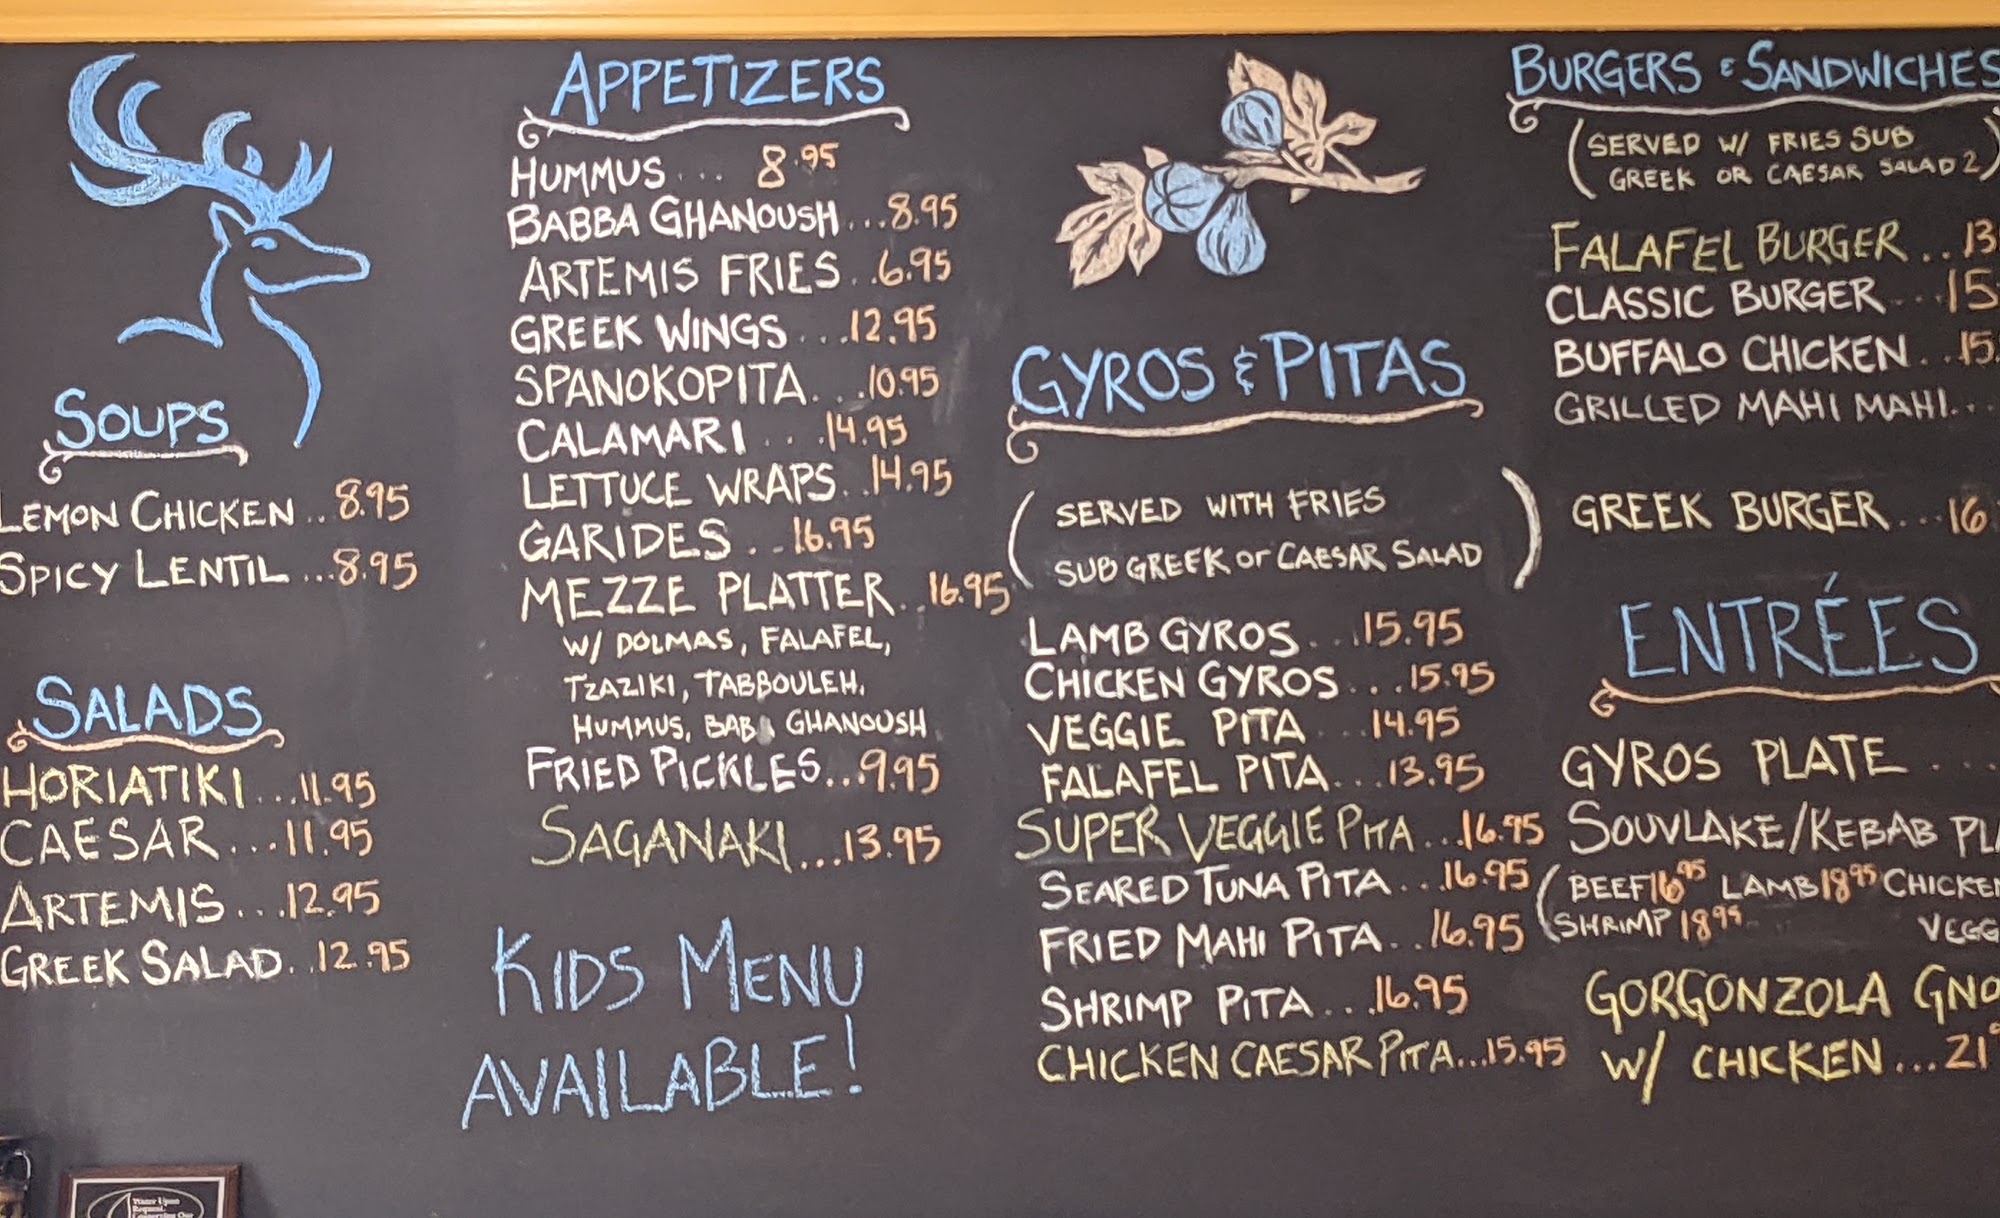 SOUPS
LEMON CHICKEN .. 8.95
SPICY LENTIL ... 8.95
SALADS
HORIATIKI ... 11.95
CAESAR ... 11.95
ARTEMIS ... 12.95
GREEK SALAD .. 12.95
APPETIZERS
HUMMUS ... 8.95
BABBA GHANOUSH ... 8.95
ARTEMIS FRIES .. 6.95
GREEK WINGS ... 12.95
SPANOKOPITA ... 10.95
CALAMARI ... 14.95
LETTUCE WRAPS .. 14.95
GARIDES ... 16.95
MEZZE PLATTER .. 16.95
W/ DOLMAS, FALAFEL,
TZAZIKI, TABBOULEH,
HUMMUS, BABA GHANOUSH
FRIED PICKLES ... 9.95
SAGANAKI ... 13.95
KIDS MENU
AVAILABLE!
GYROS & PITAS
(SERVED WITH FRIES
SUB GREEK or CAESAR SALAD)
LAMB GYROS ... 15.95
CHICKEN GYROS ... 15.95
VEGGIE PITA ... 14.95
FALAFEL PITA ... 13.95
SUPER VEGGIE PITA ... 16.95
SEARED TUNA PITA ... 16.95
FRIED MAHI PITA ... 16.95
SHRIMP PITA ... 16.95
CHICKEN CAESAR PITA ... 15.95
BURGERS & SANDWICHES
(SERVED W/ FRIES SUB
GREEK OR CAESAR SALAD 2)
FALAFEL BURGER .. 13
CLASSIC BURGER ... 15
BUFFALO CHICKEN ... 15.
GRILLED MAHI MAHI...
GREEK BURGER ... 16
ENTRÉES
GYROS PLATE ...
SOUVLAKE/KEBAB PL
(BEEF 16.95 LAMB 18.95 CHICKEN
SHRIMP 18.95 VEGG
GORGONZOLA GNO
W/ CHICKEN ... 21
Water Upon
Request.